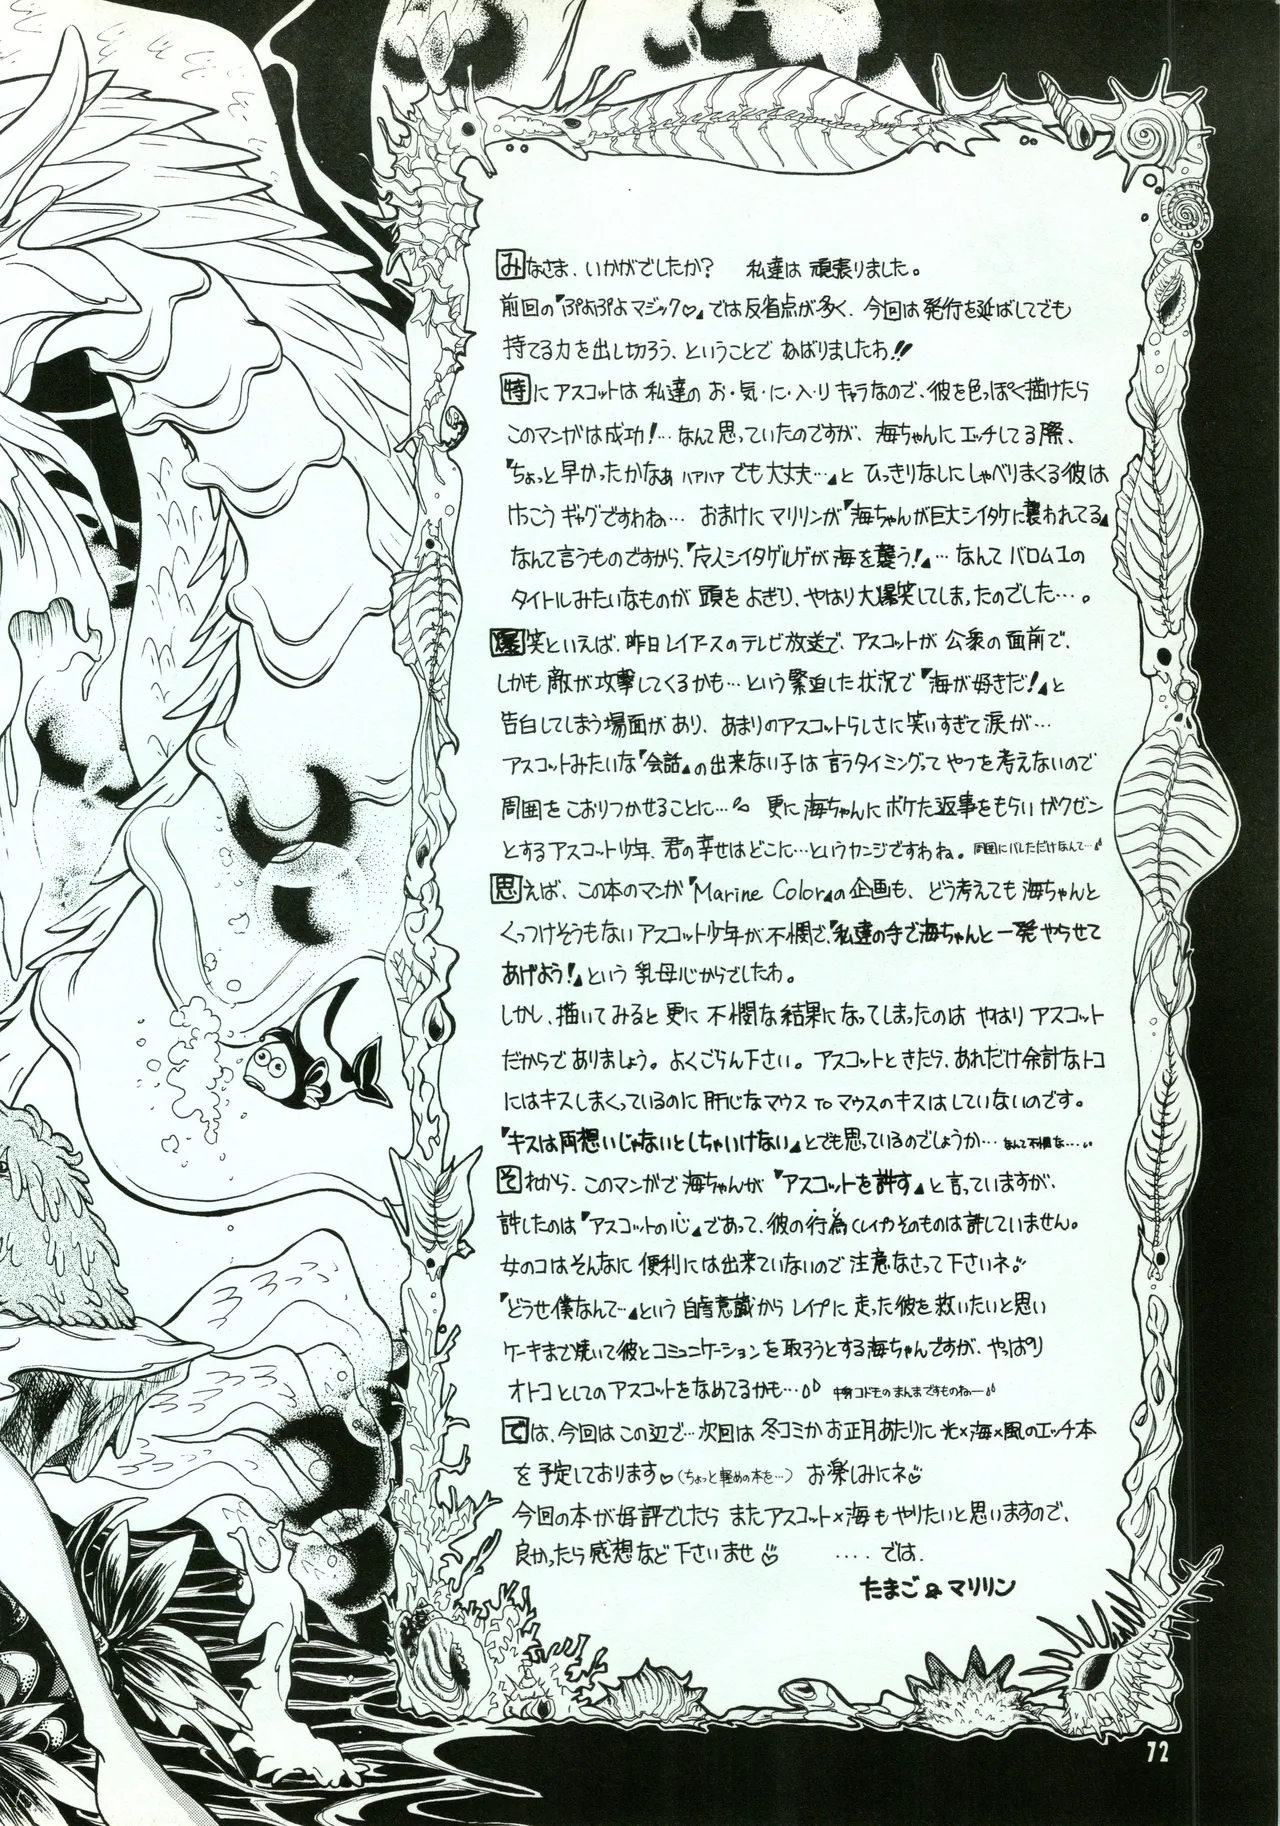 みなさま、いかがでしたか？　私達は 頑張りました。
前回の『ぷよぷよマジック♡』では反省点が多く、今回は発行を延ばしてでも
持てる力を出し切ろう、ということで ねばりましたわ!!
特に アスコットは 私達の お・気・に・入・り キャラなので、彼を色っぽく描けたら
このマンガは成功！…なんて思っていたのですが、海ちゃんにエッチしてる際、
『ちょっと早かったかなぁ ハァハァ でも大丈夫…』と ひっきりなしにしゃべりまくる彼は
けっこう ギャグですわね… おまけに マリリンが『海ちゃんが巨大シイタケに襲われてる』
なんて言うものですから、『シイタゲルゲが海を襲う！』…なんて バロム1の
タイトルみたいなものが 頭を よぎり、やはり 大爆笑してしまったのでした…。
爆笑といえば、昨日レイアースのテレビ放送で、アスコットが 公衆の面前で、
しかも 敵が攻撃してくるかも…という緊迫した状況で『海が好きだ！』と
告白してしまう場面があり、あまりのアスコットらしさに笑いすぎて涙が…
アスコットみたいな『会話』の出来ない子は 言うタイミングって やつを考えないので
周囲を こおりつかせることに… 更に 海ちゃんに ボケた返事をもらい ガクゼン
とするアスコット少年、君の幸せはどこに…というカンジですわね。 周囲にバレただけなんて…
思えば、この本のマンガ『Marine Color』の企画も、どう考えても 海ちゃんと
くっつけそうもない アスコット少年が 不憫で、『私達の手で海ちゃんと 一発 やらせて
あげよう！』という 乳母心からでしたわ。
しかし、描いてみると 更に 不憫な結果になってしまったのは やはり アスコット
だからで ありましょう。よくごらん下さい。アスコットときたら、あれだけ余計なトコ
にはキスしまくっているのに 肝心なマウス TO マウスのキスはしていないのです。
『キスは両想いじゃないとしちゃいけない』とでも思っているのでしょうか… なんて不憫な…
それから、このマンガで 海ちゃんが 『アスコットを許す』と言っていますが、
許したのは『アスコットの心』であって、彼の行為（レイプ）そのものは許していません。
女のコはそんなに 便利には出来ていないので 注意なさって下さいネ
『どうせ僕なんて…』という 自虐意識から レイプに 走った彼を救いたいと思い
ケーキまで焼いて彼とコミュニケーションを取ろうとする海ちゃんですが、やっぱり
オトコとしてのアスコットをなめてるかも… 中身コドモのまんまですものねー
では、今回は この辺で…次回は 冬コミか お正月あたりに 光×海×風のエッチ本
を 予定しております♡（ちょっと軽めの本を…） お楽しみにネ♡
今回の本が好評でしたら また アスコット×海も やりたいと思いますので、
良かったら 感想など 下さいませ♡　　‥‥では.
たまご & マリリン
72